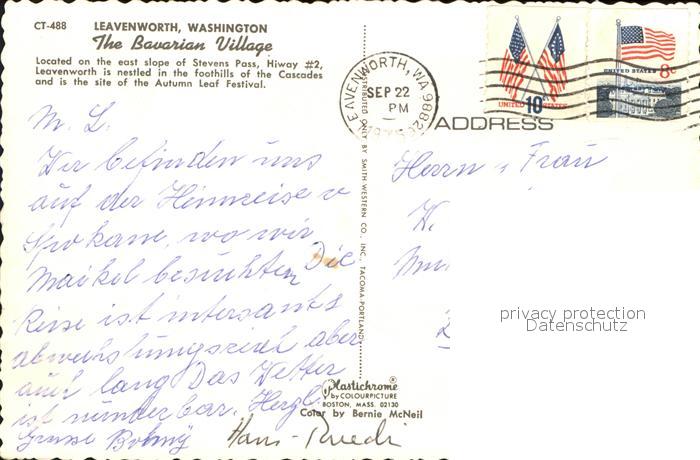 CT-488 LEAVENWORTH, WASHINGTON
The Bavarian Village
Located on the east slope of Stevens Pass, Hiway #2,
Leavenworth is nestled in the foothills of the Cascades
and is the site of the Autumn Leaf Festival.
M. L.
Wir befinden uns
auf der Heimreise v
Spokane, wo wir
Maikel besuchten Die
Reise ist intersant
abwechslungsreich aber
auch lang Das Wetter
ist wunderbar. Herzl.
Grüsse
Hans-Ruedi
DISTRIBUTED ONLY BY SMITH-WESTERN CO., INC. TACOMA-PORTLAND
Plastichrome®
by COLOURPICTURE
BOSTON, MASS. 02130
Color by Bernie McNeil
LEAVENWORTH, WA 9882
SEP 22
PM
10c
UNITED STATES
8c
UNITED STATES
ADDRESS
Herrn u Frau
privacy protection
Datenschutz